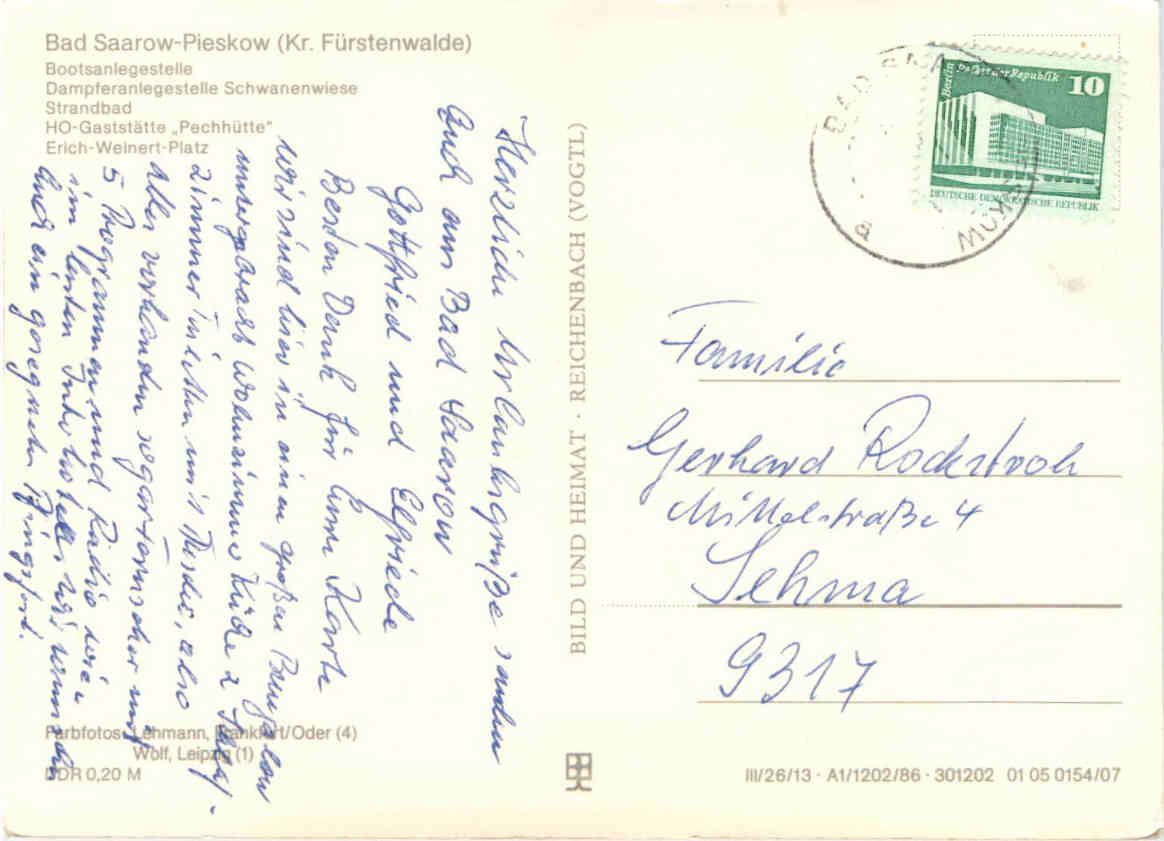 Bad Saarow-Pieskow (Kr. Fürstenwalde)
Bootsanlegestelle
Dampferanlegestelle Schwanenwiese
Strandbad
HO-Gaststätte „Pechhütte“
Erich-Weinert-Platz
Herzliche Urlaubsgrüße senden
Euch aus Bad Saarow
Gottfried und Elfriede
Besten Dank für Eure Karte
Wir sind hier in einem großen Bungalow
untergebracht Wohnzimmer Küche 2 Schlaf-
zimmer Toiletten mit Dusche, also
alles vorhanden sogar Fernseher mit
5 Programmen und Radio wie
im besten Interhotel. Wir wünschen
Euch ein gesegnetes Pfingstfest.
Farbfotos: Lehmann, Frankfurt/Oder (4)
Wolf, Leipzig (1)
DDR 0,20 M
BILD UND HEIMAT · REICHENBACH (VOGTL)
Berlin Palast der Republik
10
DEUTSCHE DEMOKRATISCHE REPUBLIK
BAD SAA
a
Familie
Gerhard Rockstroh
Mittelstraße 4
Sehma
9317
III/26/13 · A1/1202/86 · 301202 01 05 0154/07